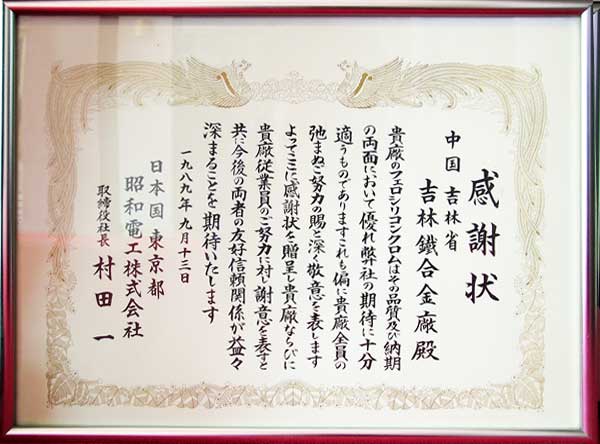 感謝状
中国 吉林省
吉林鐵合金廠殿
貴廠のフェロシリコンクロムはその品質及び納期
の両面において優れ弊社の期待に十分
適うものでありますこれも偏に貴廠全員の
弛まぬご努力の賜と深く敬意を表します
よってここに感謝状を贈呈し貴廠ならびに
貴廠従業員のご努力に対し謝意を表すと
共に今後の両者の友好信頼関係が益々
深まることを期待いたします
一九八九年九月十三日
日本国 東京都
昭和電工株式会社
取締役社長 村田 一